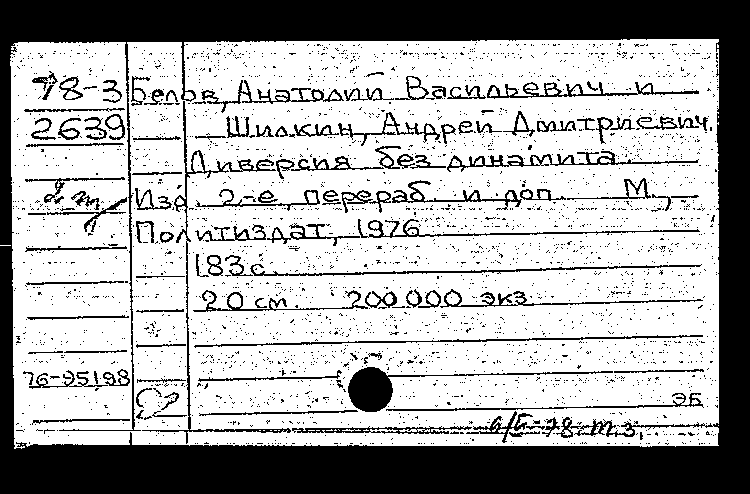 78-3 Белов, Анатолий Васильевич и
2639 Шилкин, Андрей Дмитриевич.
Диверсия без динамита.
Изд. 2-е, перераб. и доп. М.,
Политиздат, 1976
183 с.
20 см. 200000 экз
76-95198
ЭБ